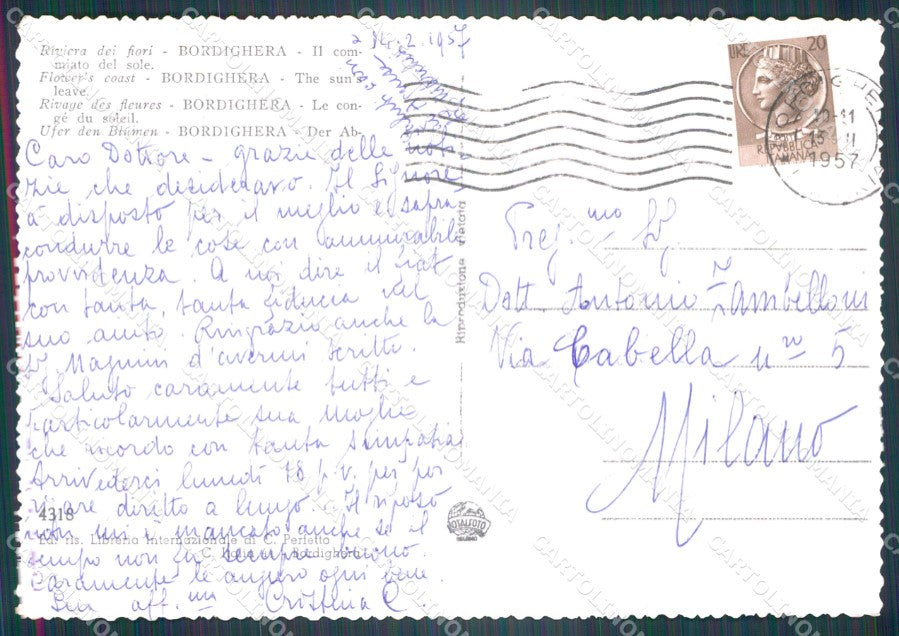 Riviera dei fiori - BORDIGHERA - Il com-
miato del sole.
Flower's coast - BORDIGHERA - The sun's
leave.
Rivage des fleures - BORDIGHERA - Le con-
gé du soleil.
Ufer den Blumen - BORDIGHERA - Der Ab-
14.2.1957
Caro Dottore - grazie delle noti-
zie che desideravo. Il Signore
à disposto per il meglio e saprà
condurre le cose con ammirabile
provvidenza. A noi dire il fiat
con tanta, tanta fiducia nel
suo aiuto. Ringrazio anche la
Magnini d'avermi scritto.
Saluto caramente tutti e
particolarmente sua moglie
che ricordo con tanta simpatia
Arrivederci lunedì 18 p.v. per
diretto a lungo. Il riposo
non mi è mancato anche se il
tempo non fu sempre buono.
Caramente le auguro ogni bene.
Sua aff.ma Cristina C.
4318
Ed. ris. Libreria Internazionale di C. Perfetto
Bordighera
Riproduzione vietata
TOTALFOTO
MILANO
LIRE 20
REPVBBLICA
ITALIANA
10-11
15 II
1957
Preg.mo Sg.
Dott. Antonio Zambelloni
Via Cabella nro 5
Milano
CARTOLINOMANIA